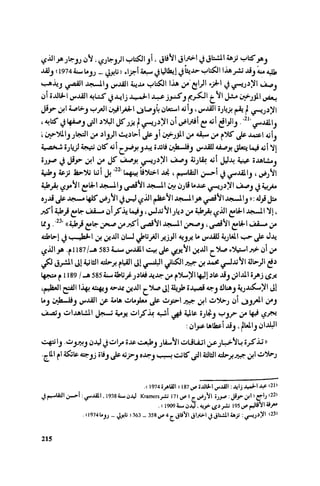 وهو كتاب نزهة المشتاق في اختراق الآفاق . أو الكتاب الروجاري . لأن روجار هو الذي
طلبه منه وقد نشر هذا الكتاب حديثاً في إيطاليا في سبعة أجزاء (نابولي - روما سنة 1974) ولقد
وصف الإدريسي في الجزء الرابع من هذا الكتاب مدينة القدس والمسجد القصي ويذهب
بعض المؤرخين مثل الأخ الكريم وكسوز عبد الحميد زايد في كتابه القدس الخالدة أن
الإدريسي لم يقم بزيارة القدس ، وأنه استعان بأوصاف الجغرافيين العرب وخاصة ابن حوقل
والمقدسي (21) . والواقع أنه مع افتراض أن الإدريسي لم يزر كل البلاد التي وصفها في كتابه ،
وأنه اعتمد على كلام من سبقه من المؤرخين أو على أحاديث الرواد من التجار والملاحين ،
إلا أنه فيما يتعلق بوصفه للقدس وفلسطين فائدة يبدو بوضوح أنه كان نتيجة لزيارة شخصية
ومشاهدة عينية بدليل أنه بمقارنة وصف الإدريسي بوصف كل من ابن حوقل في صورة
الأرض ، والمقدسي في أحسن التقاسيم ، نجد اختلافا بينهما (22) بل أننا نلاحظ نزعة وطنية
مغربية في وصف الإدريسي عندما قارن بين المسجد الأقصى والمسجد الجامع الأموي بقرطبة
مثل قوله : « والمسجد الأقصى هو المسجد الأعظم الذي ليس في الأرض كلها مسجد على قدره
، إلا المسجد الجامع الذي بقرطبة من ديار الأندلس ، وفيما يذكر أن سقف جامع قرطبة أكبر
من سقف الجامع الأقصى ، وصحن المسجد الأقصى أكبر من صحن جامع قرطبة » (23) . ومما
يدلّ على حب المغاربة للقدس ما يرويه الوزير الغرناطي لسان الدين بن الخطيب في إحاطته
من أن خبر استيلاء صلاح الدين الأيوبي على بيت المقدس سنة 583 هـ/1187م. هو الذي
دفع الرحالة الأندلسي محمد بن جبير الكناني البلنسي إلى القيام برحلته الثانية إلى المشرق لكي
يرى زهرة المدائن وقد عاد إليها الإسلام من جديد فغادر غرناطة سنة 585 هـ/ 1189 م متجها
إلى الإسكندرية وهناك وجه قصيدة طويلة إلى صلاح الدين مدحه ويهنئه بهذا الفتح العظيم،
ومن المعروف أن رحلات ابن جبير احتوت على معلومات هامة عن القدس وفلسطين وما
يجري فيها من حروب وتجارة عالمية فهي أشبه بمذكرات يومية تسجل المشاهدات وتصف
البلدان والمعالم . وقد أعطاها عنوان :
« تذكرة بالأخبار عن اتفاقات الأسفار وطبعت عدة مرات في ليدن وبيروت. وانتهت
رحلات ابن جبير برحلته الثالثة التي كانت بسبب وجده وحزنه على وفاة زوجته عاتكة ام المجد.
(21) عبد الحميد زايد : القدس الخالدة ص 187 ( القاهرة 1974 ).
(22) راجع (ابن حوقل : صورة الأرض ج 1 ص 171 نشر Kramers ليدن سنة 1938 ، المقدسي : أحسن التقاسيم في
معرفة الأقاليم ص 195 نشر دي خويه ، ليدن سنة 1909 ).
(23) الإدريسي : نزهة المشتاق في اختراق الآفاق ج 4 ص 358 ــ 363 ( نابولي ــ روما 1974).
215